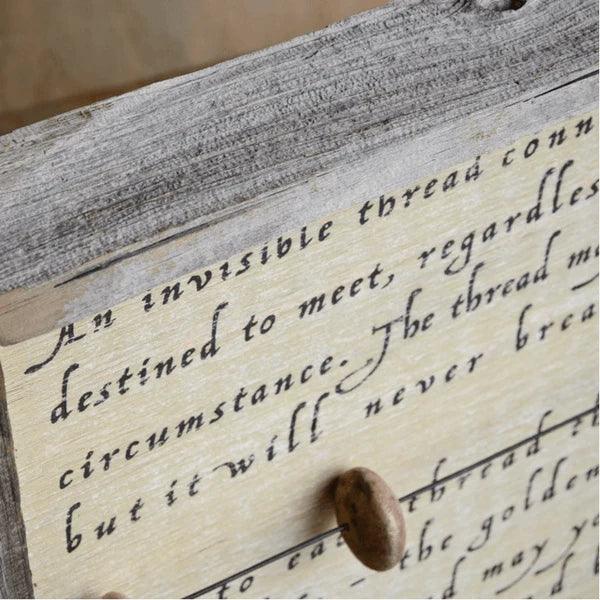 An invisible thread conn
destined to meet, regardless
circumstance. The thread ma
but it will never brea
thread
to ea
the golden
may yo